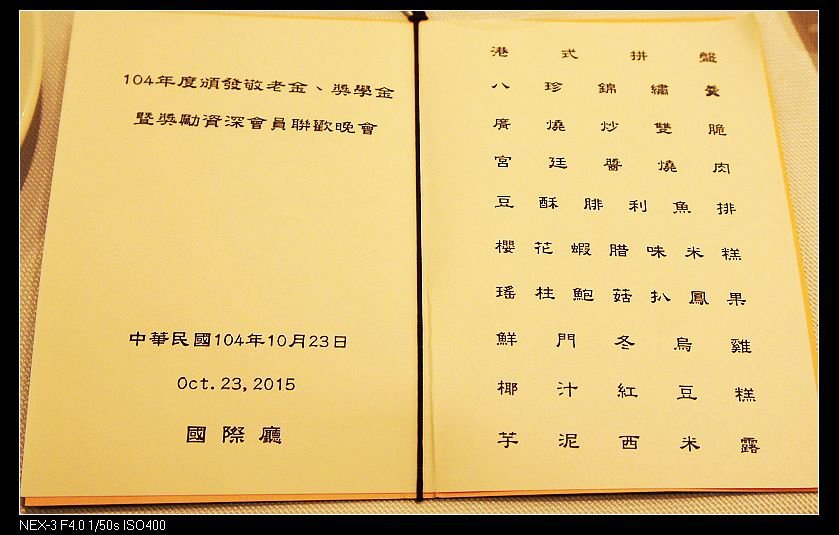 104年度頒發敬老金、獎學金
暨獎勵資深會員聯歡晚會
中華民國104年10月23日
Oct.23,2015
國際廳
港式拼盤
八珍錦繡羹
廣燒炒雙脆
宮廷醬燒肉
豆酥腓利魚排
櫻花蝦腊味米糕
瑤柱鮑菇扒鳳果
鮮門冬烏雞
椰汁紅豆糕
芋泥西米露
NEX-3 F4.0 1/50s ISO400